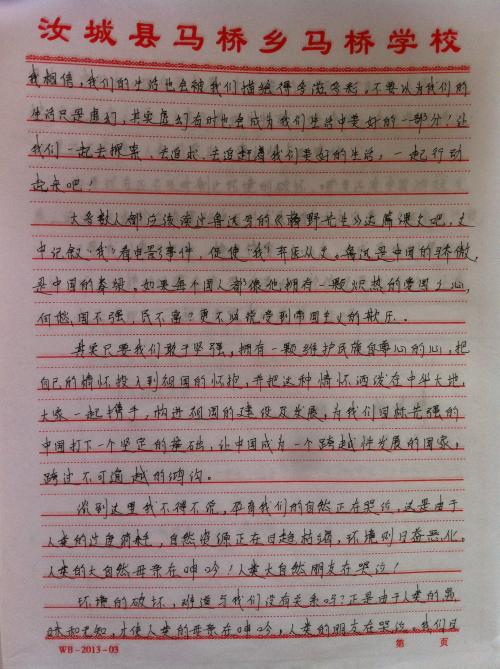 汝城县马桥乡马桥学校
我相信，我们的生活也会被我们描绘得多滋多彩，不要以为我们的
生活只是虚幻，其实虚幻有时也会成为我们生活中美好的一部分！让
我们一起去探索、去追求、去追赶着我们美好的生活，一起行动
起来吧！
大多数人都应该读过鲁迅写的《藤野先生》这篇课文吧，文
中记叙"我"看电影事件，促使"我"弃医从文。鲁迅是中国的骄傲，
是中国的脊梁，如果每个国人都像他拥有一颗炽热的爱国之心，
何愁国不强，民不富？更不必说受到帝国主义的欺压。
其实只要我们敢于坚强，拥有一颗维护民族自尊心的心，把
自己的情怀投入到祖国的怀抱，并把这种情怀洒泼在中华大地，
大家一起携手，构进祖国的建设及发展，为我们日趋先强的
中国打下一个坚定的基础，让中国成为一个跨越性发展的国家，
跨过不可逾越的鸿沟。
谈到这里我不得不说，平育我们的自然正在哭泣，这是由于
人类的过度消耗，自然资源正在日趋枯竭，环境则日益恶化。
人类的大自然母亲在呻吟！人类大自然朋友在哭泣！
环境的破坏，难道与我们没有关系吗？正是由于人类的愚
昧和无知，才使人类的母亲在呻吟，人类的朋友在哭泣。我们日
WB-2013-03
第 页